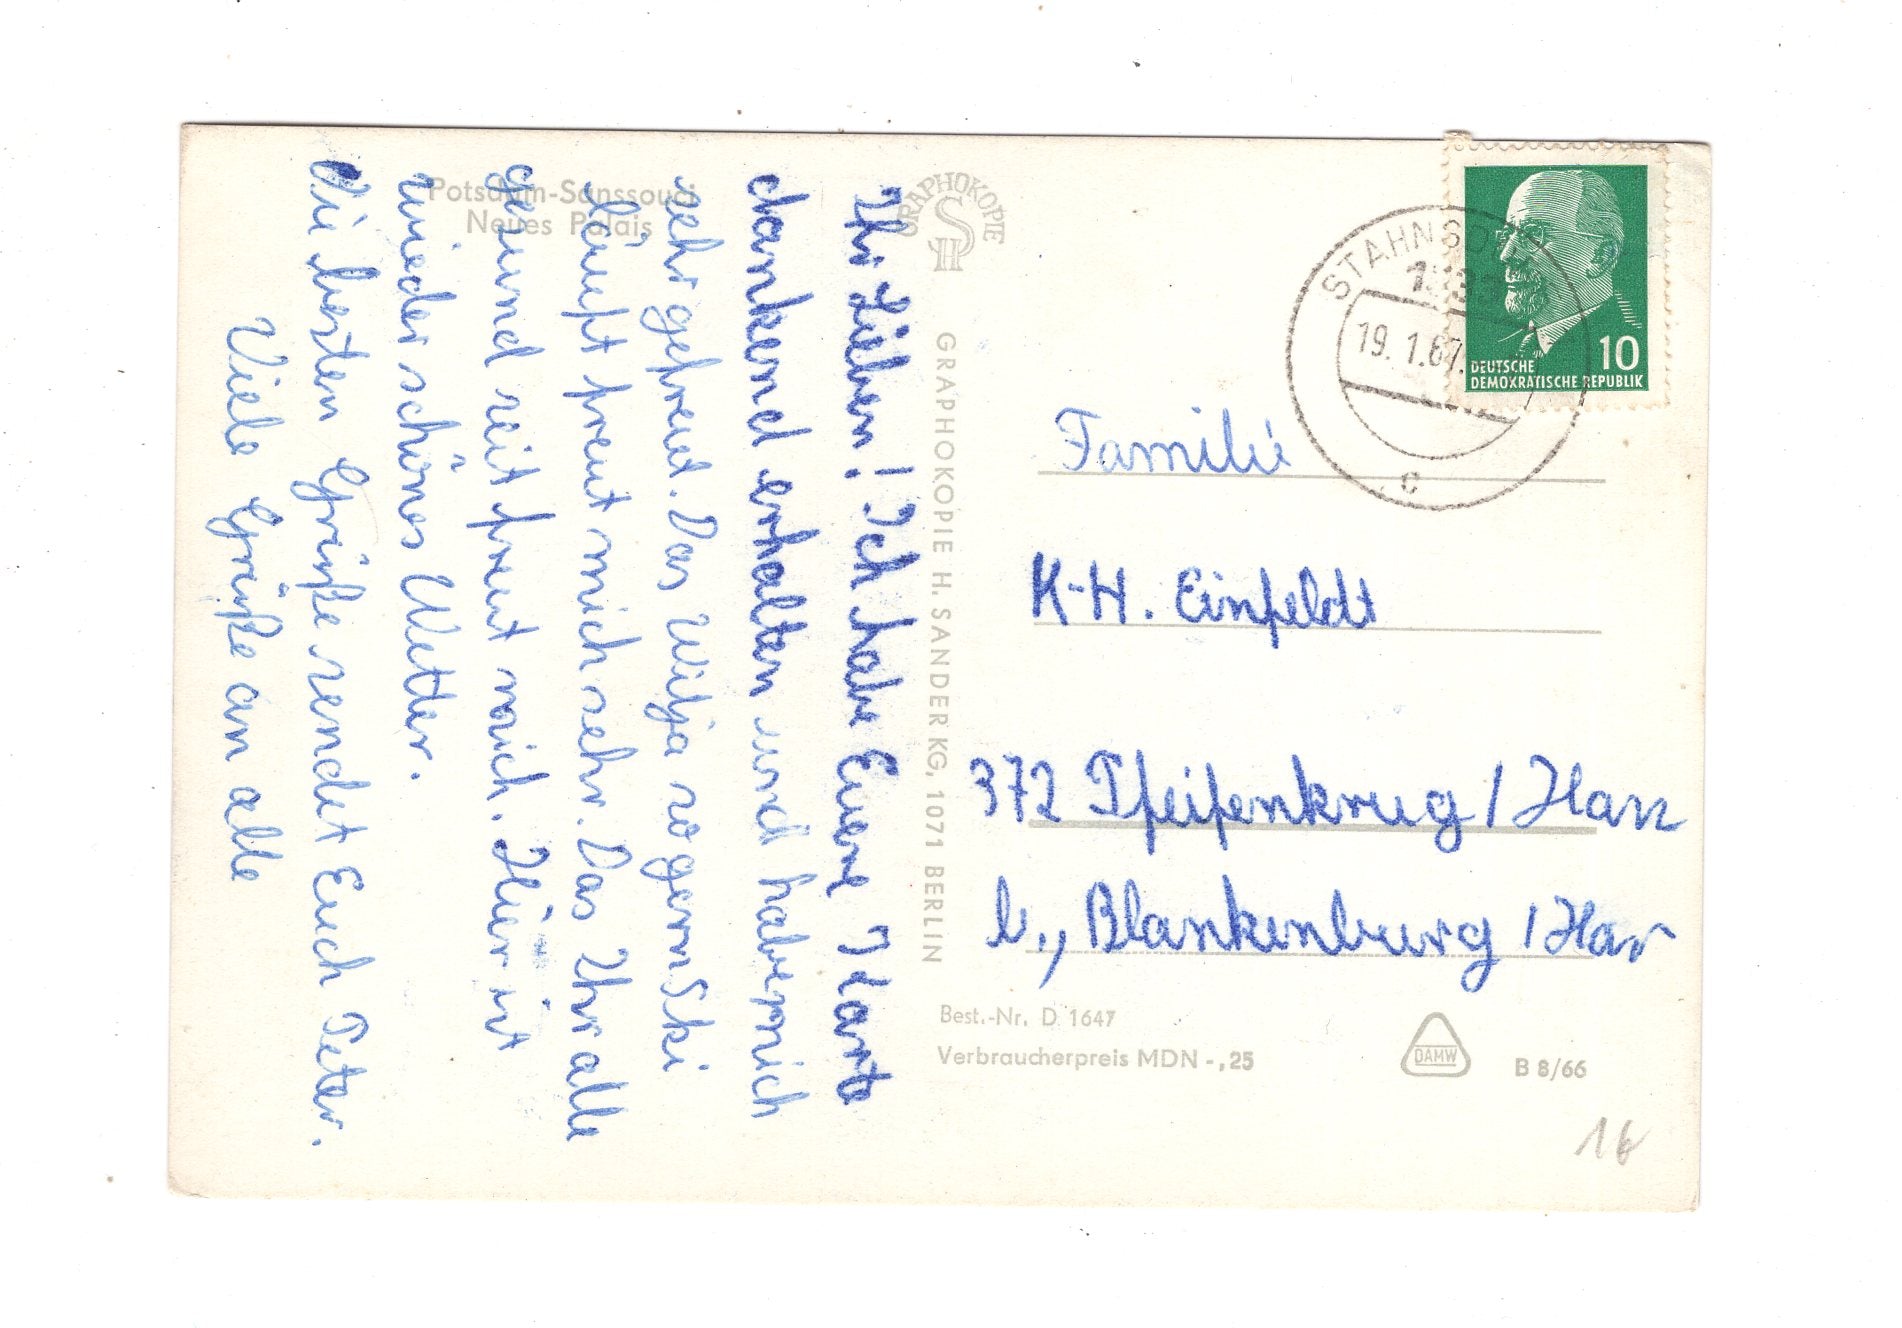 Potsdam-Sanssouci
Neues Palais
GRAPHOKOPIE
H S
GRAPHOKOPIE H. SANDER KG, 1071 BERLIN
Ihr Lieben! Ich habe Euere Karte
dankend erhalten und habe mich
sehr gefreut. Das Witja so gern Ski
läuft freut mich sehr. Das Ihr alle
gesund seit freut mich. Hier ist
wieder schönes Wetter.
Die besten Grüße sendet Euch Peter.
Viele Grüße an alle
STAHNSDORF
19.1.67
c
10
DEUTSCHE
DEMOKRATISCHE REPUBLIK
Familie
K-H. Einfeldt
372 Pfeifenkrug / Harz
b., Blankenburg / Har
Best.-Nr. D 1647
Verbraucherpreis MDN -,25
DAMW
B 8/66
16